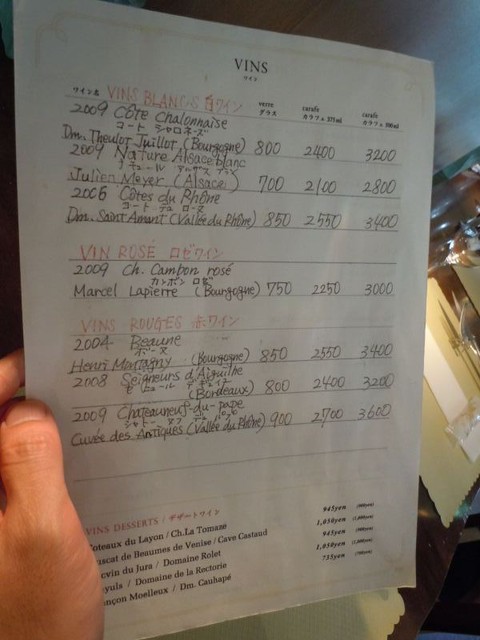 VINS
ワイン
ワイン名 VINS BLANCS 白ワイン verre グラス carafe カラフェ 375ml carafe カラフェ 500ml
2009 Côte Chalonnaise
コート シャロネーズ
Dm. Theulot Juillot (Bourgogne) 800 2400 3200
2009 Nature Alsace blanc
Julien Meyer (Alsace) 700 2100 2800
2006 Côtes du Rhône
コート デュ ローヌ
Dm. Saint Amant (Vallée du Rhône) 850 2550 3400
VIN ROSÉ ロゼワイン
2009 Ch. Cambon rosé
カンボン ロゼ
Marcel Lapierre (Bourgogne) 750 2250 3000
VINS ROUGES 赤ワイン
2004 Beaune
ボーヌ
Henri Martagny (Bourgogne) 850 2550 3400
2008 Seigneurs d'Aiguilhe
(Bordeaux) 800 2400 3200
2009 Chateauneuf-du-pape
Cuvée des Antiques (Vallée du Rhône) 900 2700 3600
VINS DESSERTS / デザートワイン
Coteaux du Layon / Ch.La Tomaze 945yen
uscat de Beaumes de Venise / Cave Castaud 1,050yen
cvin du Jura / Domaine Rolet 945yen
nyuls / Domaine de la Rectorie 1,050yen
ançon Moelleux / Dm. Cauhapé 735yen